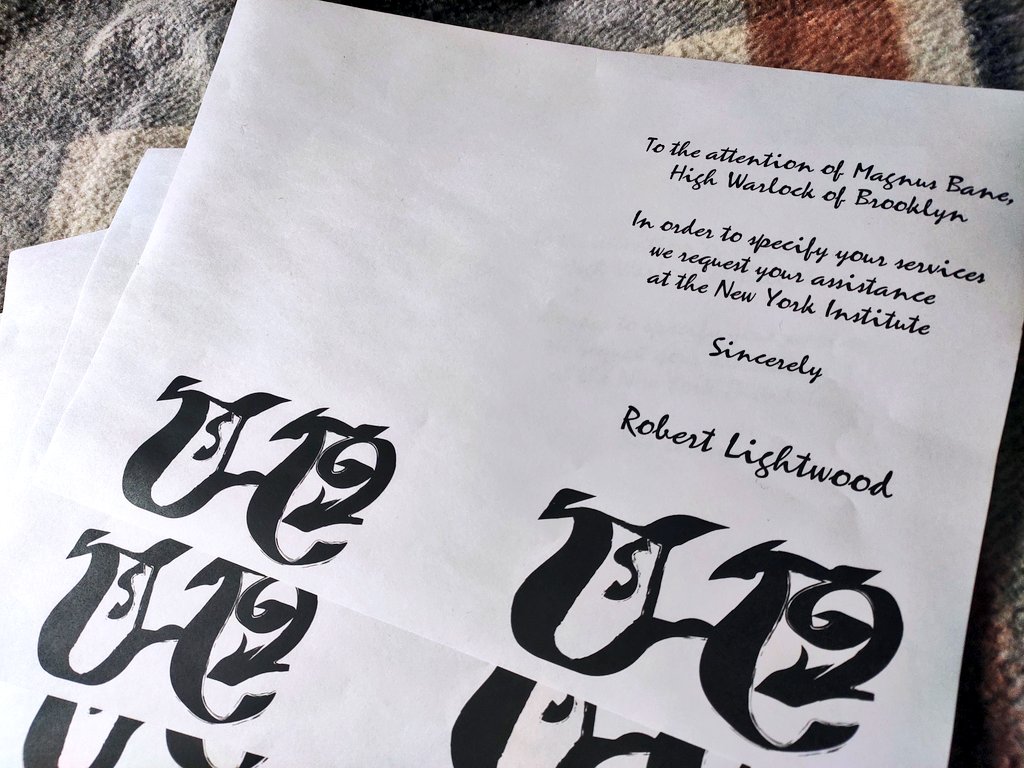 To the attention of Magnus Bane,
High Warlock of Brooklyn
In order to specify your services
we request your assistance
at the New York Institute
Sincerely
Robert Lightwood